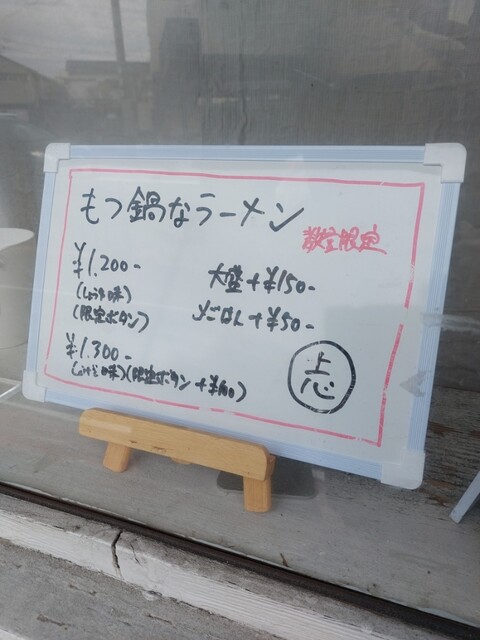 もつ鍋なラーメン
数量限定
¥1.200-
(しょうゆ味)
(限定ボタン)
¥1.300-
(みそ味)(限定ボタン+¥100)
大盛+¥150-
+¥50-